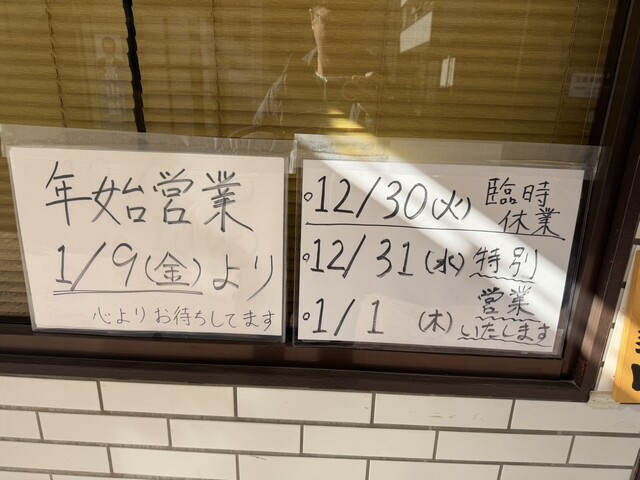 年始営業
1/9(金)より
心よりお待ちしてます
。12/30(火) 臨時休業
。12/31(水) 特別
。1/1(木) 営業いたします